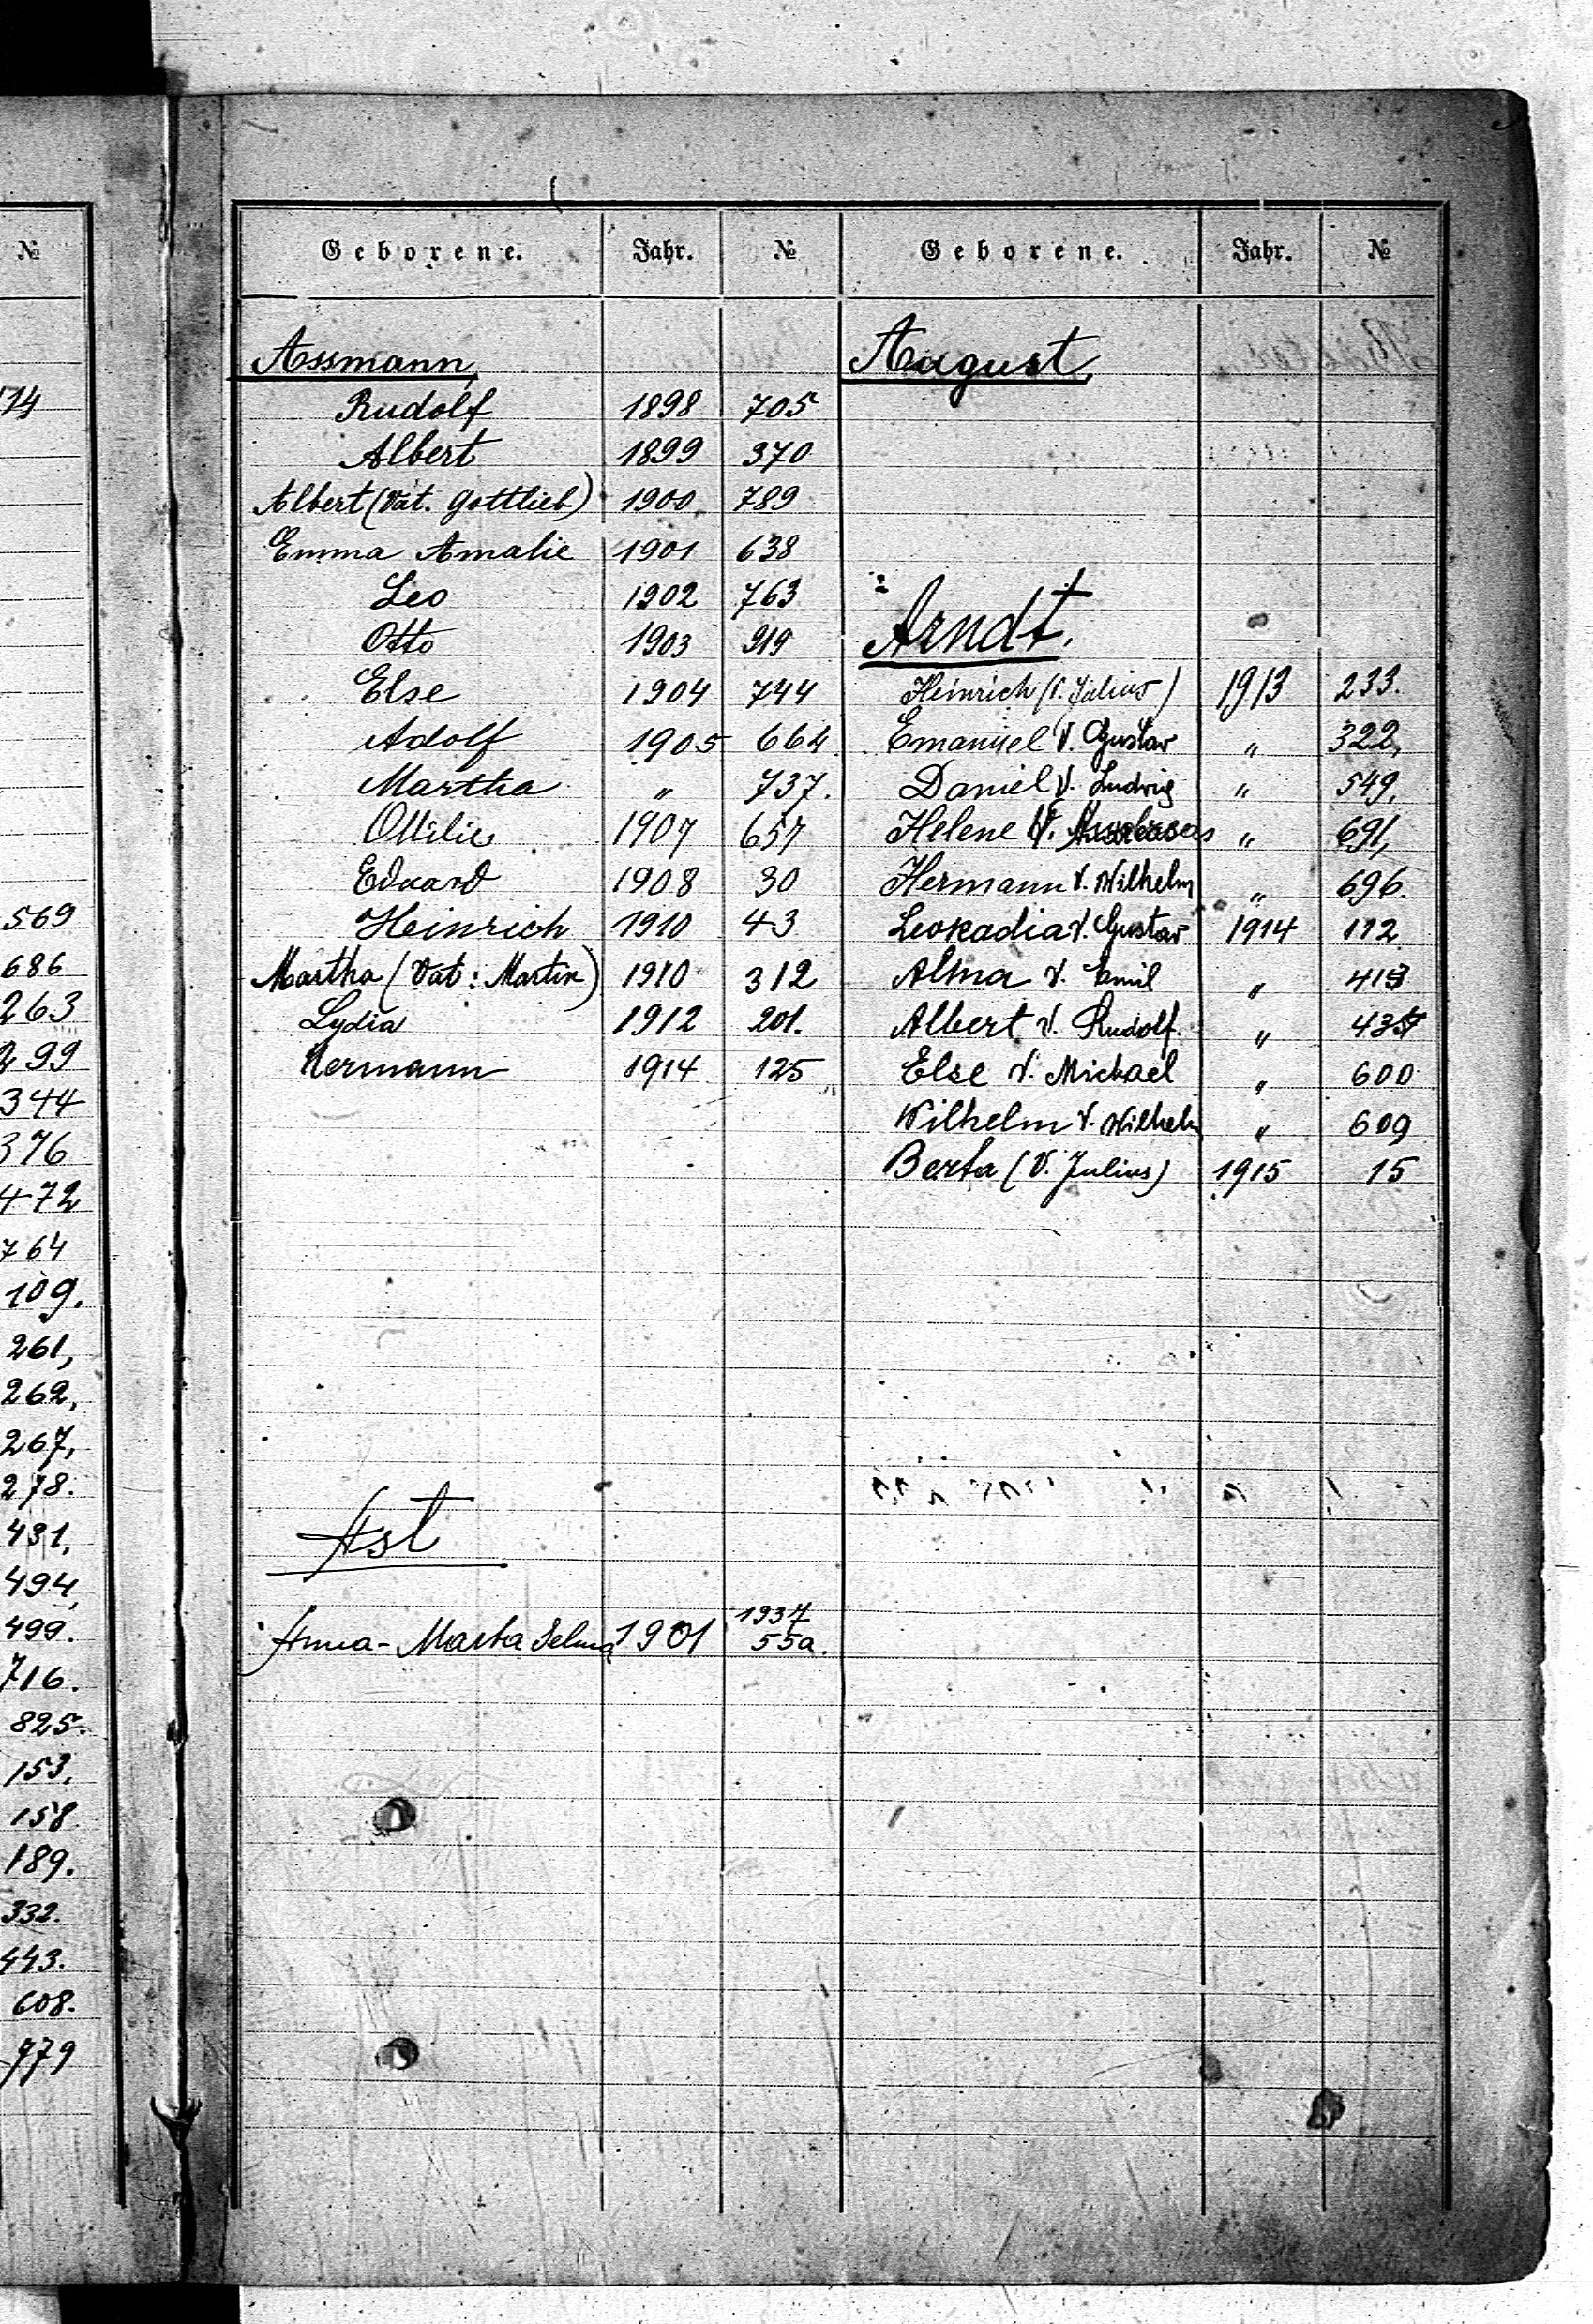 №
174
569
686
263
299
344
376
472
764
109.
261,
262,
267,
278.
431,
494,
499.
716.
825.
153,
158
189.
332.
443.
608.
779
Geborene. Jahr. №
Assmann,
Rudolf 1898 705
Albert 1899 370
Albert (Vat. Gottlieb) 1900 789
Emma Amalie 1901 638
Leo 1902 763
Otto 1903 919
Else 1904 744
Adolf 1905 664
Martha " 737.
Ottilie 1907 657
Eduard 1908 30
Heinrich 1910 43
Martha (Vat: Martin) 1910 312
Lydia 1912 201.
Hermann 1914 125
Ast
Anna-Marta Selma 1901 1937
55a.
Geborene. Jahr. №
August,
Arndt.
Heinrich (V. Julius) 1913 233.
Emanuel V. Gustav " 322,
Daniel V. Ludwig " 549,
Helene V. " 691,
Hermann V. Wilhelm " 696.
Leokadia V. Gustav 1914 112
Alma V. Emil " 413
Albert V. Rudolf. " 437
Else V. Michael " 600
Wilhelm V. Wilhelm " 609
Berta (V. Julius) 1915 15